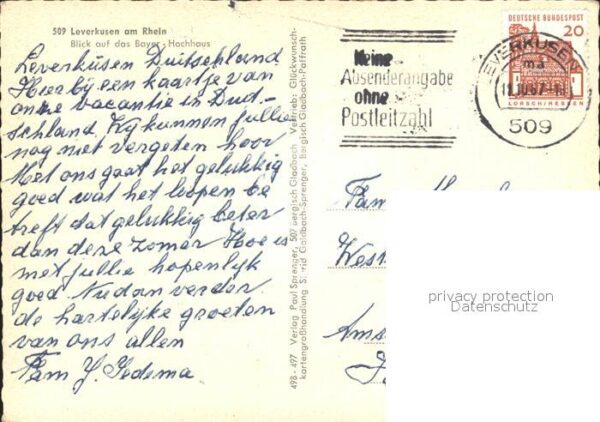 509 Leverkusen am Rhein
Blick auf das Bayer-Hochhaus
Leverküsen Duitschland
Hierbij een kaartje van
onze vacantie in Dud.-
schland Wij kunnen jullie
nog niet vergeten hoor
Met ons gaat het gelukkig
goed wat het loopen be
treft dat gelukkig beter
dan deze zomer Hoe is
met jullie hopenlijk
goed. Nu dan verder
de hartelijke groeten
van ons allen
Fam Y. Iedema
498-497 Verlag Paul Sprenger, 507 Bergisch Gladbach Vertrieb: Glückwunsch-
kartengroßhandlung Sigrid Goldbach-Sprenger, Bergisch Gladbach-Paffrath
Keine
Absenderangabe
ohne
Postleitzahl
LEVERKUSEN
ma
509
DEUTSCHE BUNDESPOST
20
LORSCH/HESSEN
Fam
West
Ams
privacy protection
Datenschutz